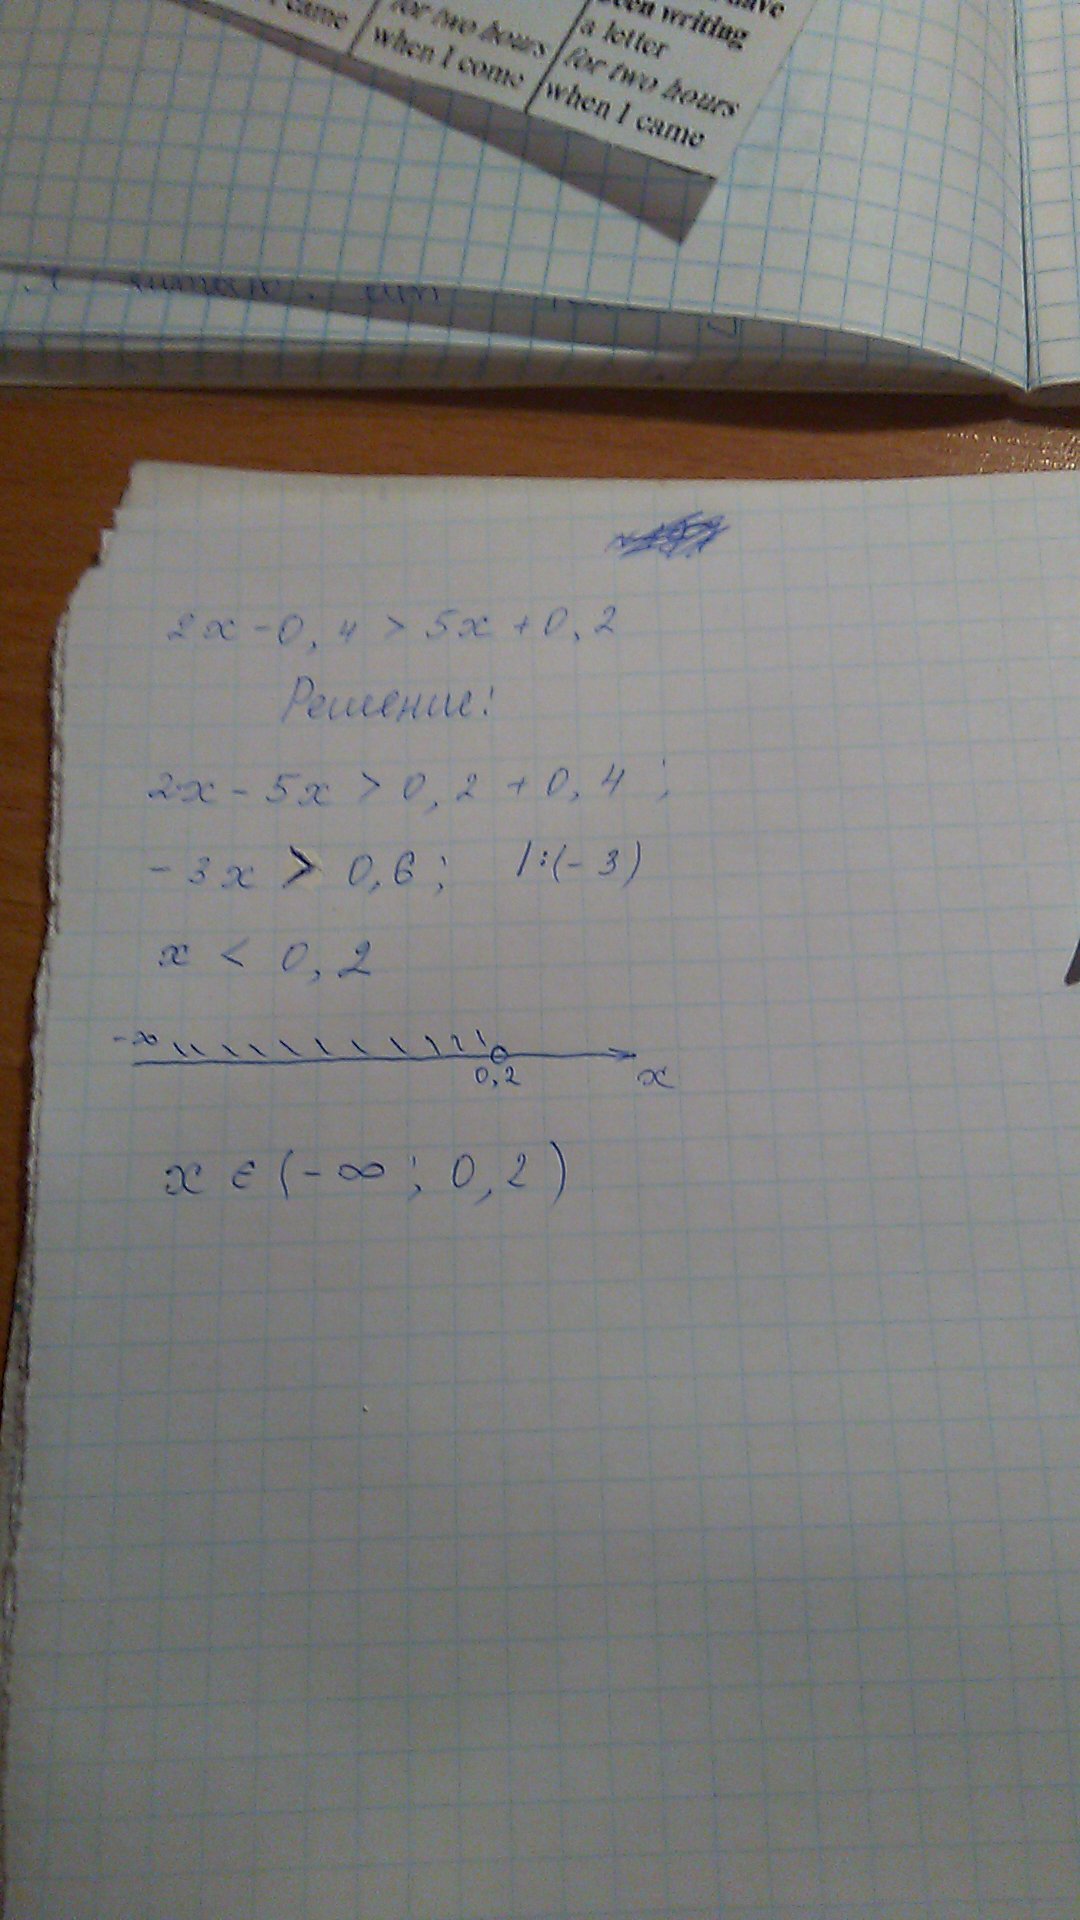 came
for two hours
when I come
been writing
a letter
for two hours
when I came
2x - 0,4 > 5x + 0,2
Решение:
2x - 5x > 0,2 + 0,4 ;
- 3x > 0,6 ; | : (- 3)
x < 0,2
-∞
0,2
x
x ∈ (- ∞ ; 0,2)